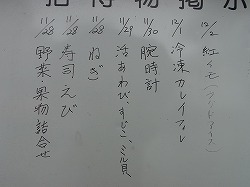 拾得物掲示
12/2 紅イモ(アンドアイス)
12/1 冷凍カレイフィレ
11/30 腕時計
11/29 活あわび、すじこ、ミル貝
11/28 ねぎ
11/28 寿司えび
11/28 野菜・果物詰合せ